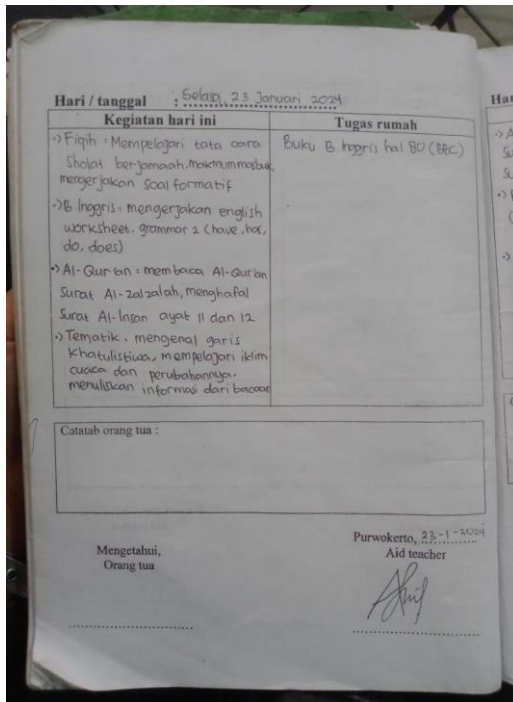 Hari / tanggal : Selasa, 23 Januari 2024
Kegiatan hari ini
Tugas rumah
·) Fiqih : Mempelajari tata cara
Sholat berjamaah, makmum masbuk,
mengerjakan soal formatif
·) B. Inggris : mengerjakan english
worksheet, grammar 2 (have, has,
do, does)
·) Al-Qur'an : membaca Al-Qur'an
Surat Al-Zalzalah, menghafal
Surat Al-Insan ayat 11 dan 12
·) Tematik : mengenal garis
khatulistiwa, mempelajari iklim
cuaca dan perubahannya,
menuliskan informasi dari bacaan
Buku B. Inggris hal 80 (BBC)
Catatab orang tua :
Purwokerto, 23-1-2024
Mengetahui,
Orang tua
Aid teacher
Har